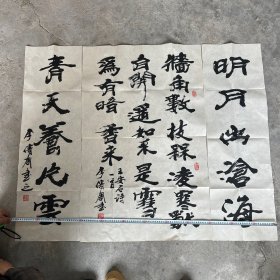 明月出滄海
牆角數枝梅凌寒獨
自開遥知不是雪
為有暗香来
王安石诗
一首
青天養片雲